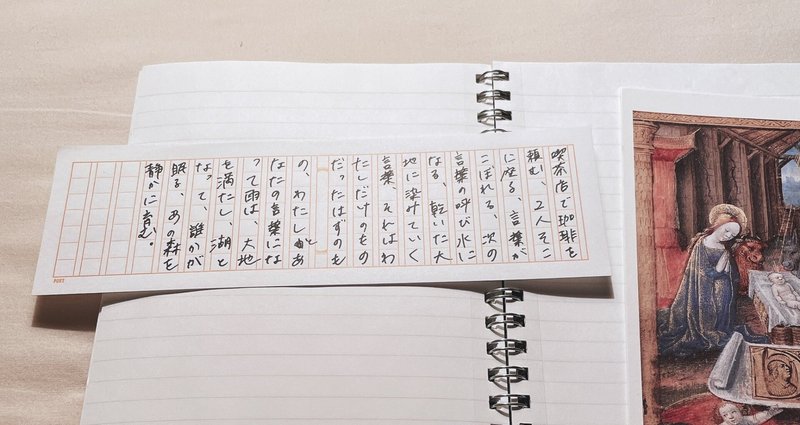 喫茶店で珈琲を
頼む、2人そこ
に座る、言葉が
こぼれる、次の
言葉の呼び水に
なる、乾いた大
地に染みていく
言葉、それはわ
たしだけのもの
だったはずのも
の、わたしとあ
なたの言葉にな
って雨は、大地
を満たし、湖と
なって、誰かが
眠る、あの森を
静かに育む。